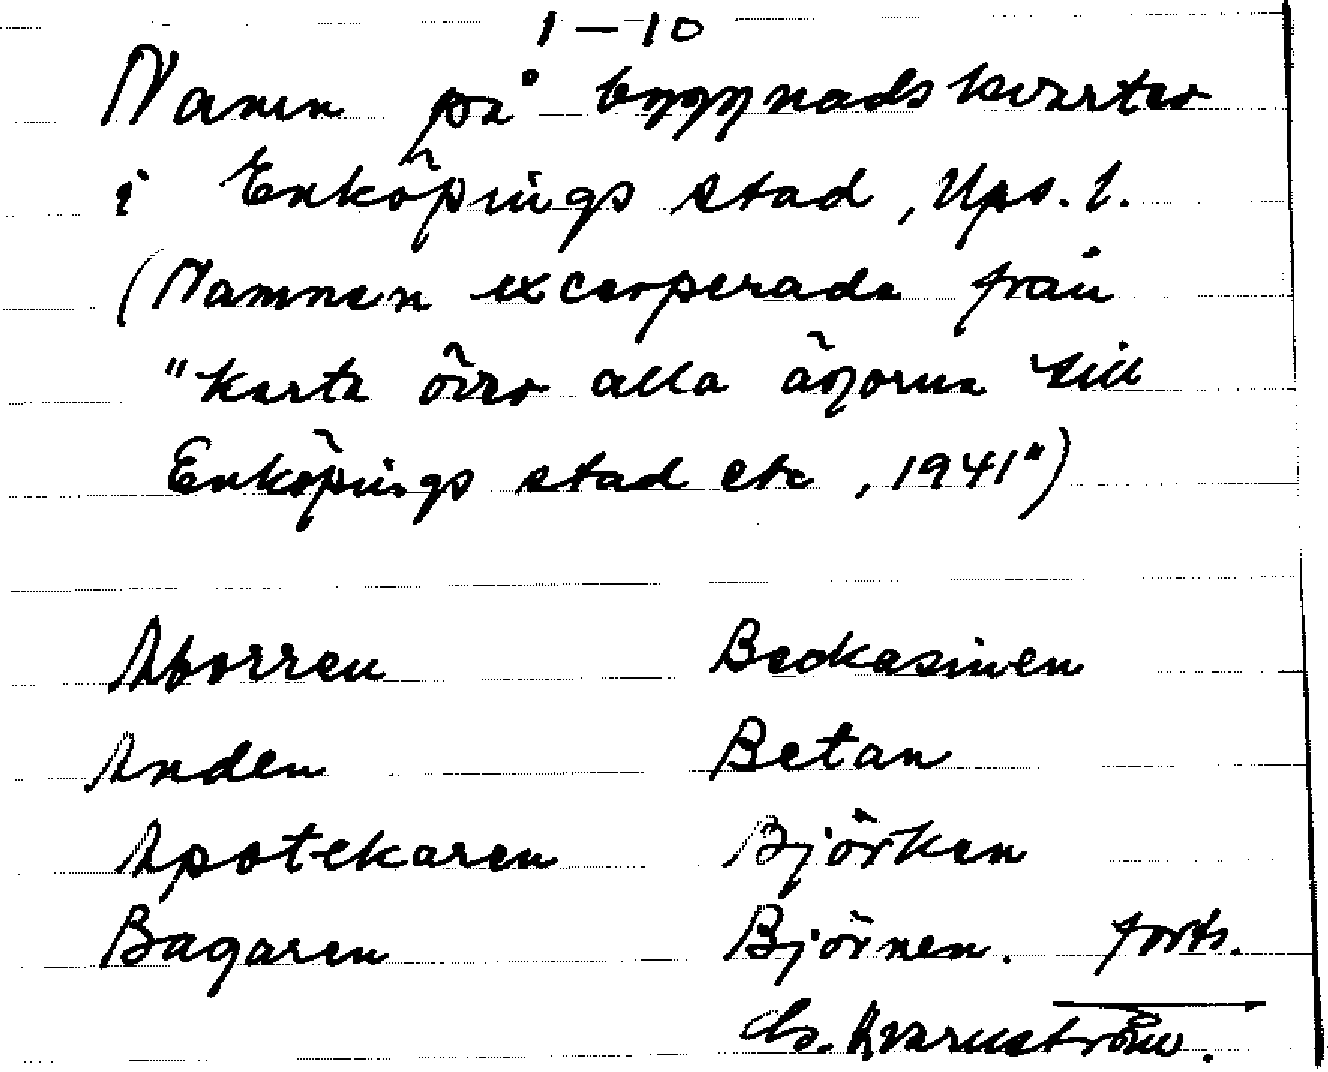 1-10
Namn på byggnadskvarter
i Enköpings stad, Ups. l.
(Namnen excerperade från
"Karta över alla ägorna till
Enköpings stad etc, 1941")
Aborren
Anden
Apotekaren
Bagaren
Beckasinen
Betan
Björken
Björnen. forts.
Kvarnström.